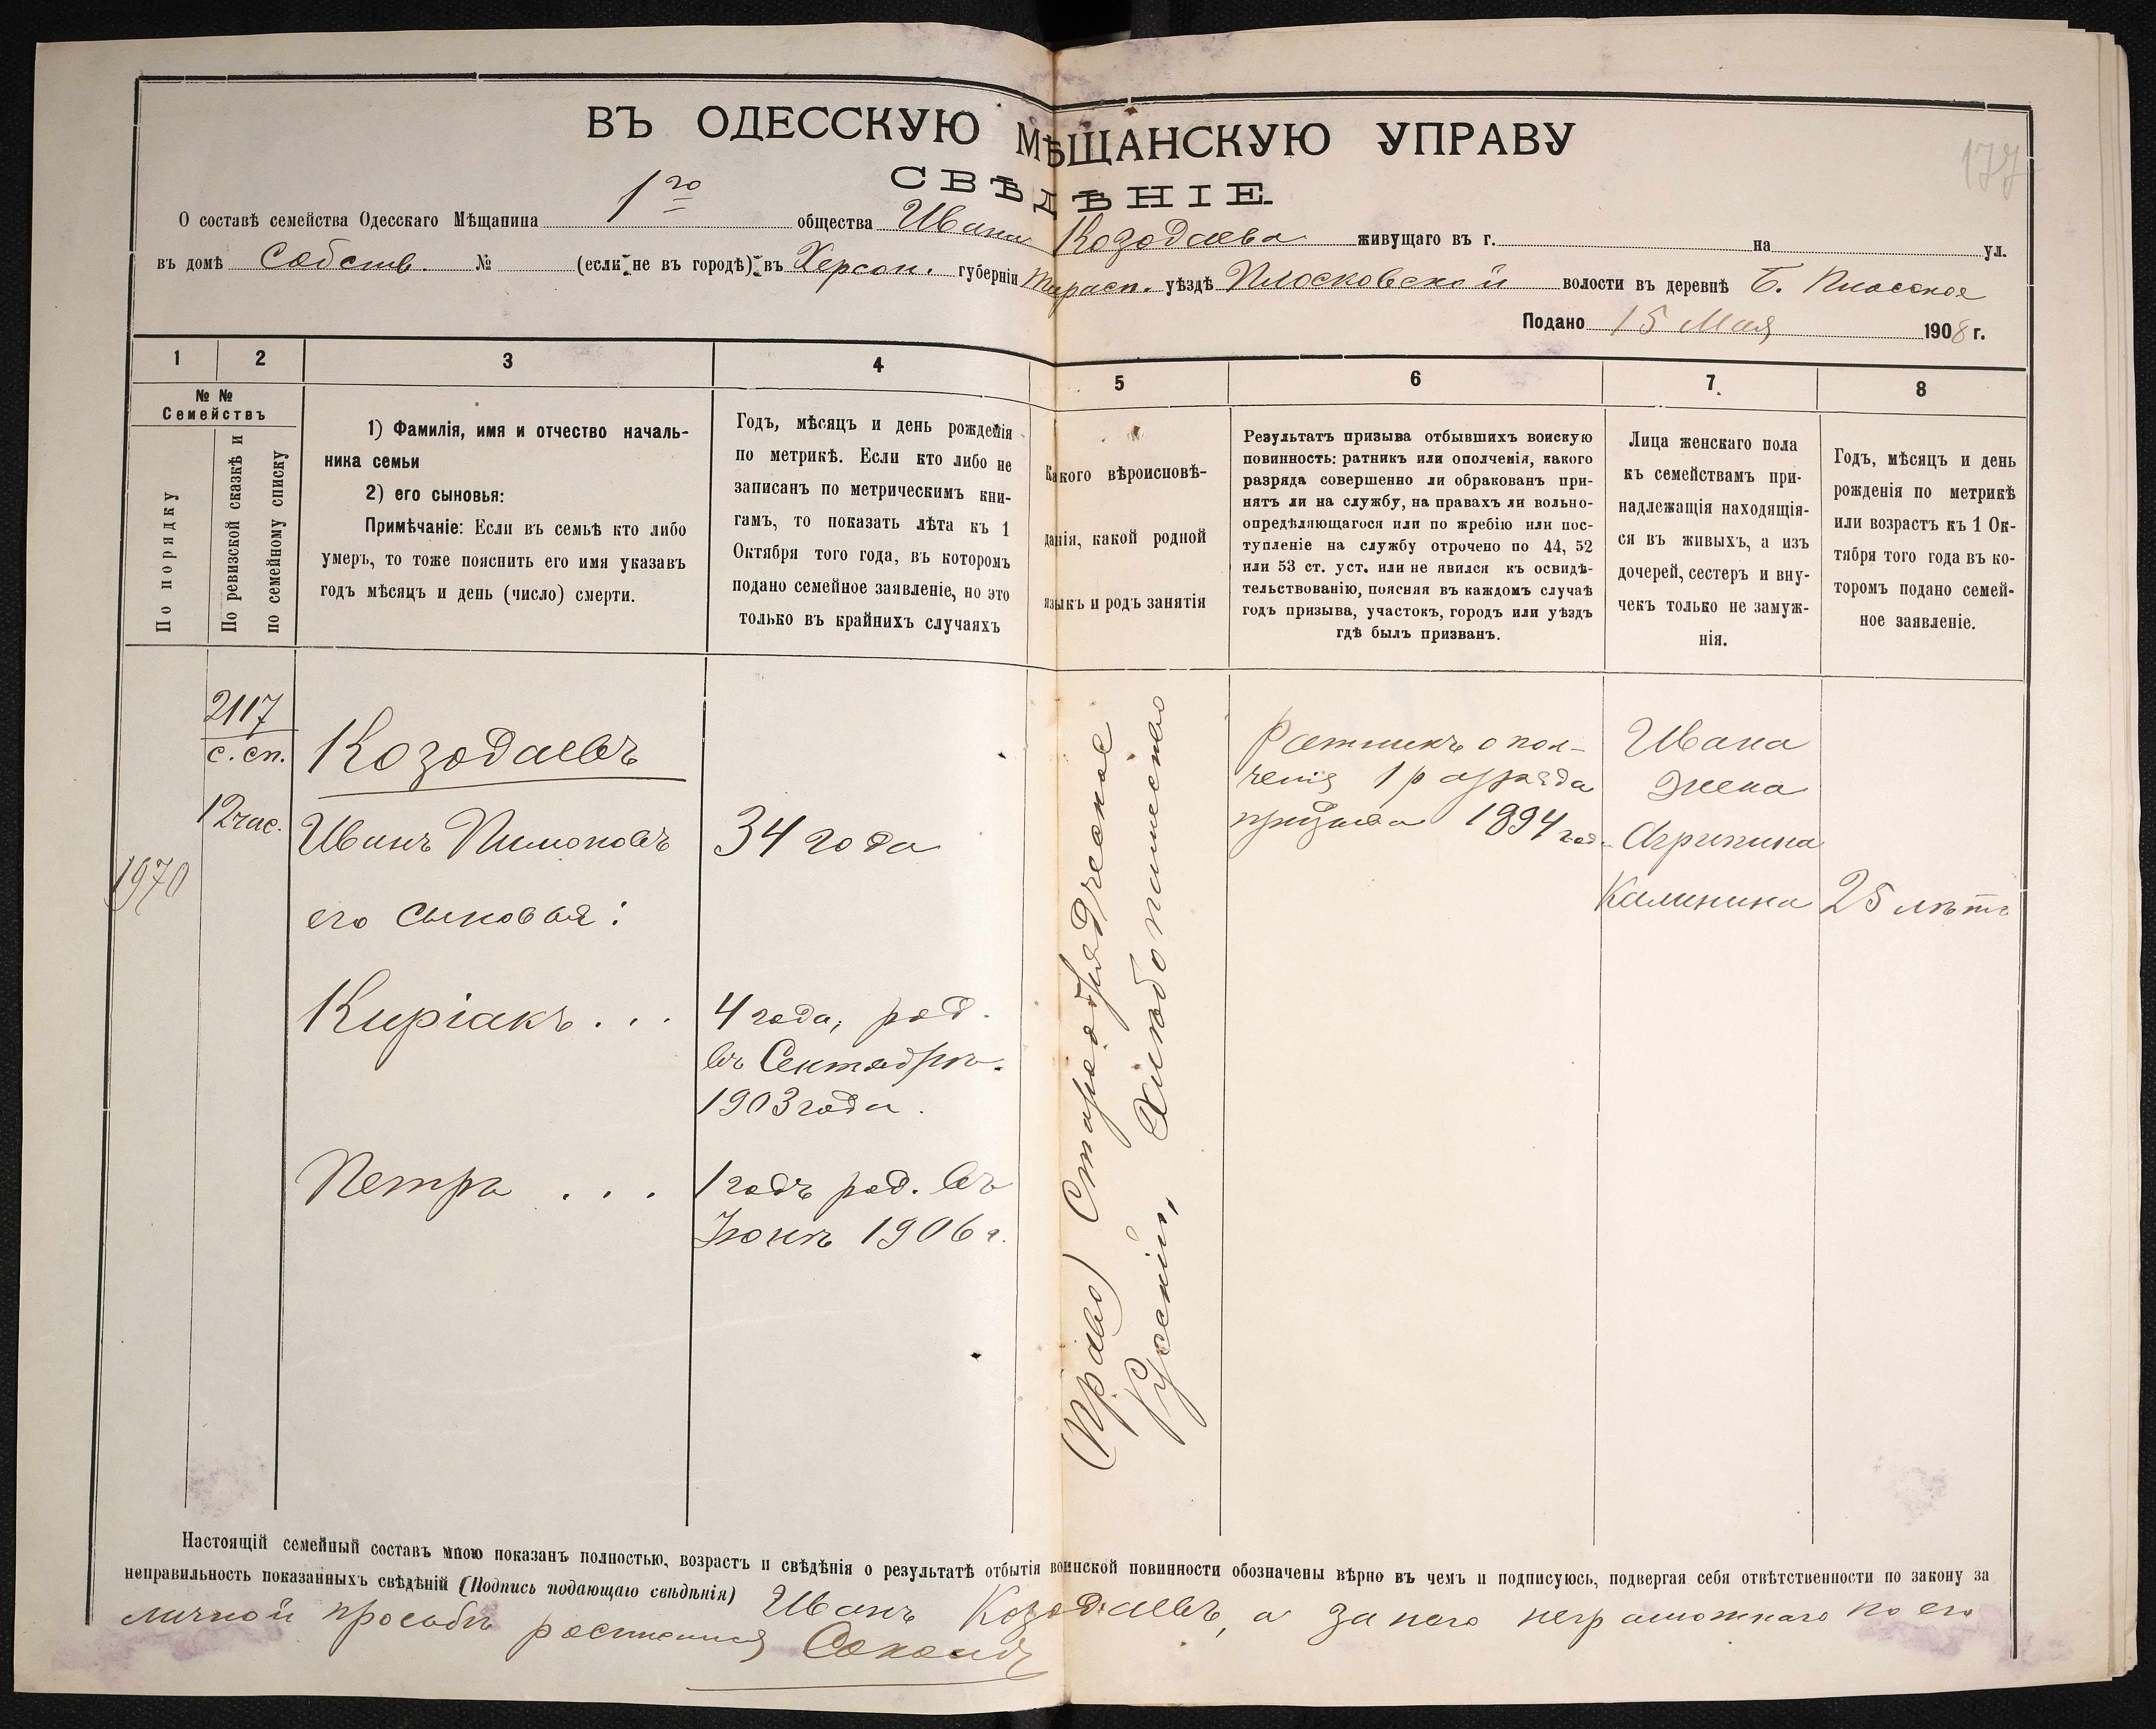 ВЪ ОДЕССКУЮ МѢЩАНСКУЮ УПРАВУ
СВѢДѢНІЕ
177
О составѣ семейства Одесскаго Мѣщанина 1го общества Ивана Козодаева живущаго въ г. на ул.
въ домѣ Собств. № (если не въ городѣ) въ Херсон. губерніи Тирасп. уѣздѣ Плосковской волости въ деревнѣ Б. Плоское
Подано 15 Мая 1908 г.
1 2 3 4 5 6 7. 8
№ №
Семействъ
По порядку
По ревизской сказкѣ и
по семейному списку
1) Фамилія, имя и отчество началь-
ника семьи
2) его сыновья:
Примѣчаніе: Если въ семьѣ кто либо
умеръ, то тоже пояснить его имя указавъ
годъ мѣсяцъ и день (число) смерти.
Годъ, мѣсяцъ и день рожденія
по метрикѣ. Если кто либо не
записанъ по метрическимъ кни-
гамъ, то показать лѣта къ 1
Октября того года, въ которомъ
подано семейное заявленіе, но это
только въ крайнихъ случаяхъ
Какого вѣроисповѣ-
данія, какой родной
языкъ и родъ занятія
Результатъ призыва отбывшихъ воискую
повинность: ратникъ или ополченія, какого
разряда совершенно ли обракованъ при-
нятъ ли на службу, на правахъ ли вольно-
опредѣляющагося или по жребію или пос-
тупленіе на службу отрочено по 44, 52
или 53 ст. уст. или не явился къ освидѣ-
тельствованію, поясняя въ каждомъ случаѣ
годъ призыва, участокъ, городъ или уѣздъ
гдѣ былъ призванъ.
Лица женскаго пола
къ семействамъ при-
надлежащія находящія-
ся въ живыхъ, а изъ
дочерей, сестеръ и вну-
чекъ только не замуж-
нія.
Годъ, мѣсяцъ и день
рожденія по метрикѣ
или возрастъ къ 1 Ок-
тября того года въ ко-
торомъ подано семей-
ное заявленіе.
2117
с. сп.
12 час.
1970
Козодаевъ
Иванъ Пимоновъ
его сыновья:
Киріакъ . . .
Петръ . . .
34 года
4 года, род.
въ Сентябрѣ.
1903 года.
1 годъ род. въ
Іюнѣ 1906 г.
(Право) Старообрядческое
Русскій, Хлѣбопашество
Ратникъ опол-
ченія 1 разряда
призыва 1894 год.
Ивана
жена
Агрипина
Калинина
25 лѣтъ
Настоящій семейный составъ мною показанъ полностью, возрастъ и свѣдѣнія о результатѣ отбытія воинской повинности обозначены вѣрно въ чемъ и подписуюсь, подвергая себя отвѣтственности по закону за
неправильность показанныхъ свѣдѣній (Подпись подающаго свѣдѣнія) Иванъ Козодаевъ, а за него неграмотнаго по его
личной просьбѣ росписался